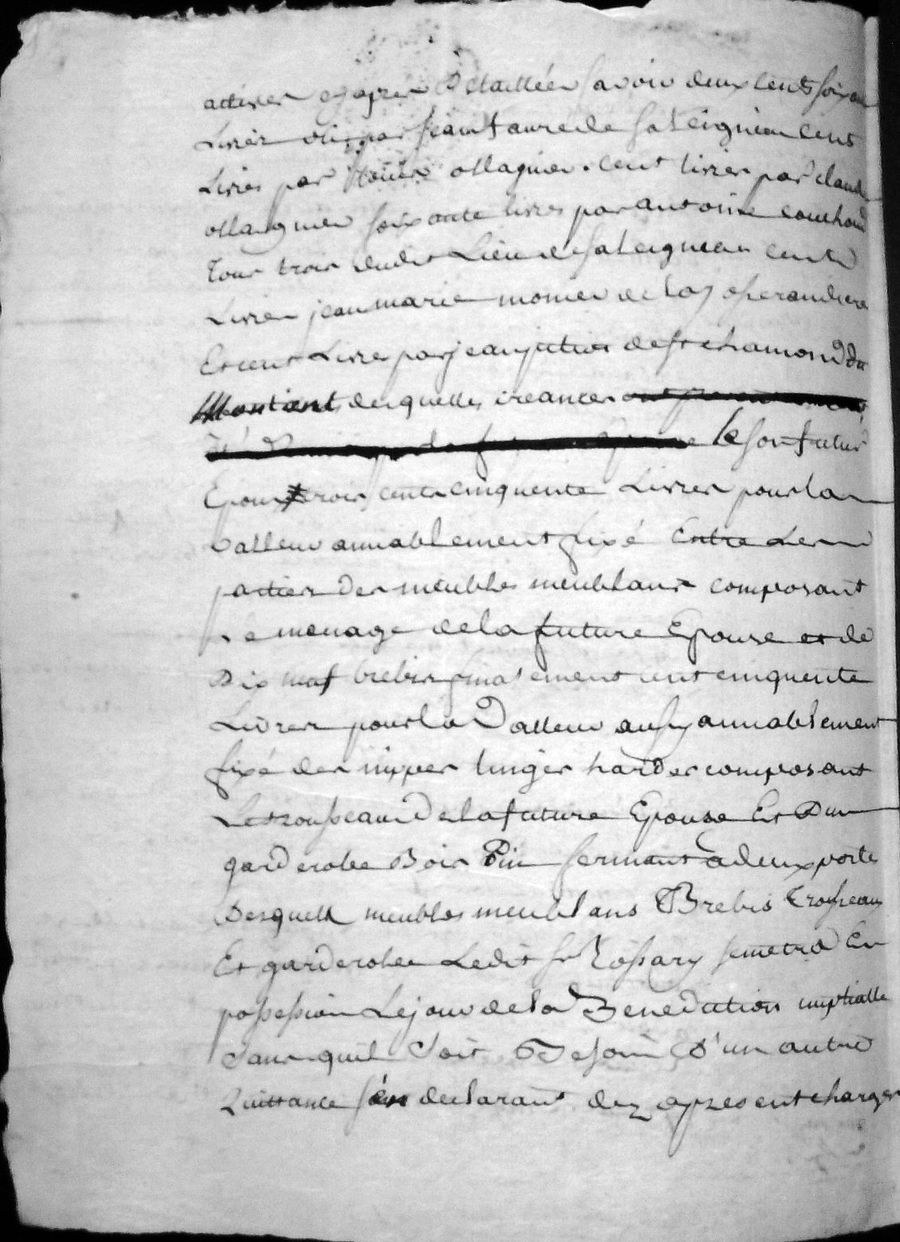 actives cy apres Detaillées savoir deux cents soixante
Livres par jean faure de sateignieu cent
Livres par ollagnier cent livres par claude
ollagnier soixante livres par antoine couchoud
Tous trois dudit Lieu de sateignieu cent
Livres jean marie monier de la
Et cent Livres par jean de st chamond du
Montant desquelles creances
le so. futur
Epoux trois cents cinquente Livres pour la
valleur amiablement fixé Entre Les
parties des meubles meublans composant
Le menage de la future Epouse et de
Dix neuf brebis finalement cent cinquente
Livres pour la Valleur aussy amiablement
fixé des nippes linges hardes composant
Le trousseau De la future Epouse Et D'un
garderobe Bois Pin fermant a deux portes
Desquels meubles meublans Brebis Trousseau
Et garderobe Ledit sr Rossary semetra En
possession Le jour de la Benediction nuptialle
sans quil soit Besoin D'un autre
Quittance sen declarant dez apresent charger